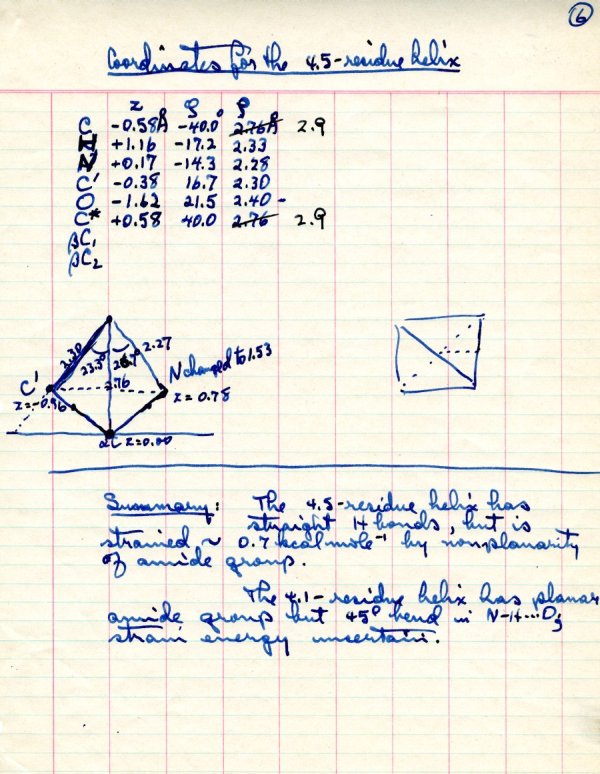 6
Coordinates for the 4.5-residue helix
z φ ρ
C -0.58Å -40.0° 2.76Å 2.9
H +1.16 -17.2 2.33
N +0.17 -14.3 2.28
C' -0.38 16.7 2.30
O -1.62 21.5 2.40 -
C* +0.58 40.0 2.76 2.9
βC₁
βC₂
2.30 23.3° 2.27
2.76 N changed to 1.53
C' z = 0.78
z=-0.96
αC z=0.00
Summary: The 4.5-residue helix has
straight H bonds, but is
strained ~ 0.7 kcal mole⁻¹ by nonplanarity
of amide group.
The 4.1-residue helix has planar
amide group but 45° bend in N-H···O;
strain energy uncertain.